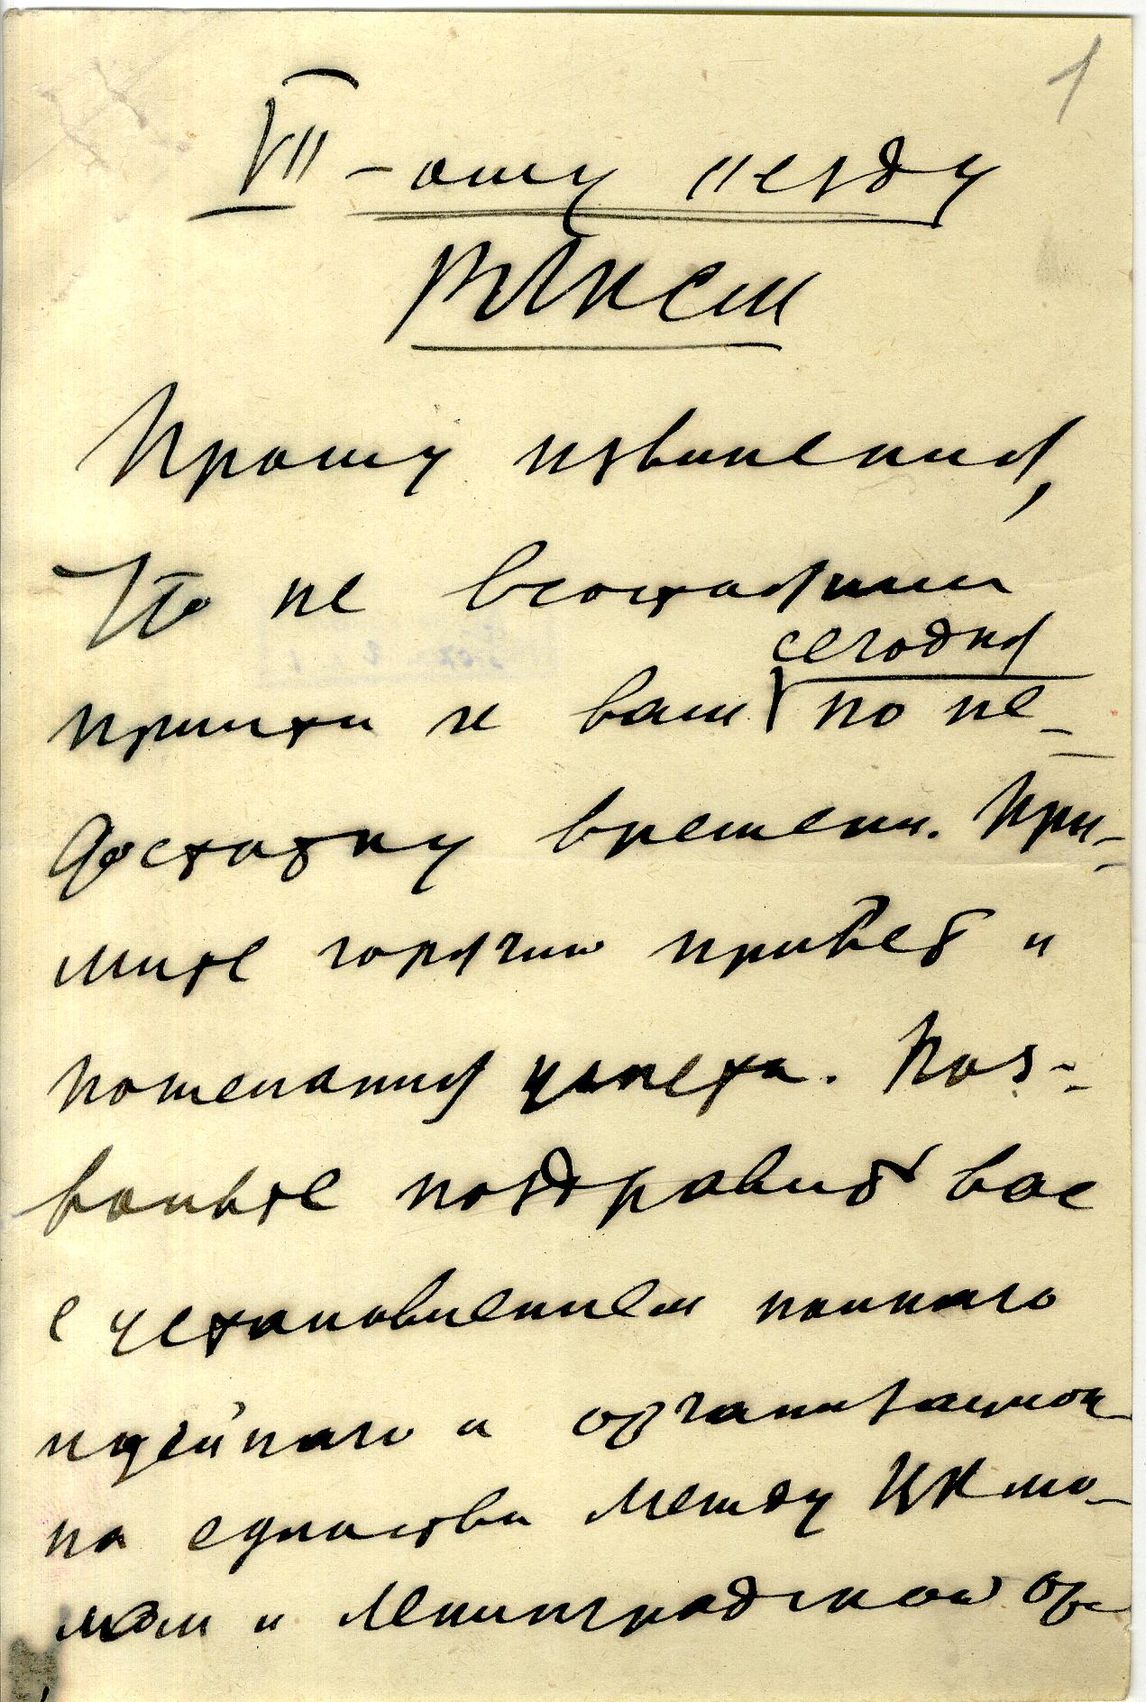 1
VII-ому съезду
РЛКСМ
Прошу извинения,
что не в состоянии
сегодня
притти к вам по не-
достатку времени. При-
мите горячий привет и
пожелания успеха. Поз-
вольте поздравить вас
с установлением полного
идейного и организацион-
на единства между ЦКмо-
лом и Ленинградской ор-